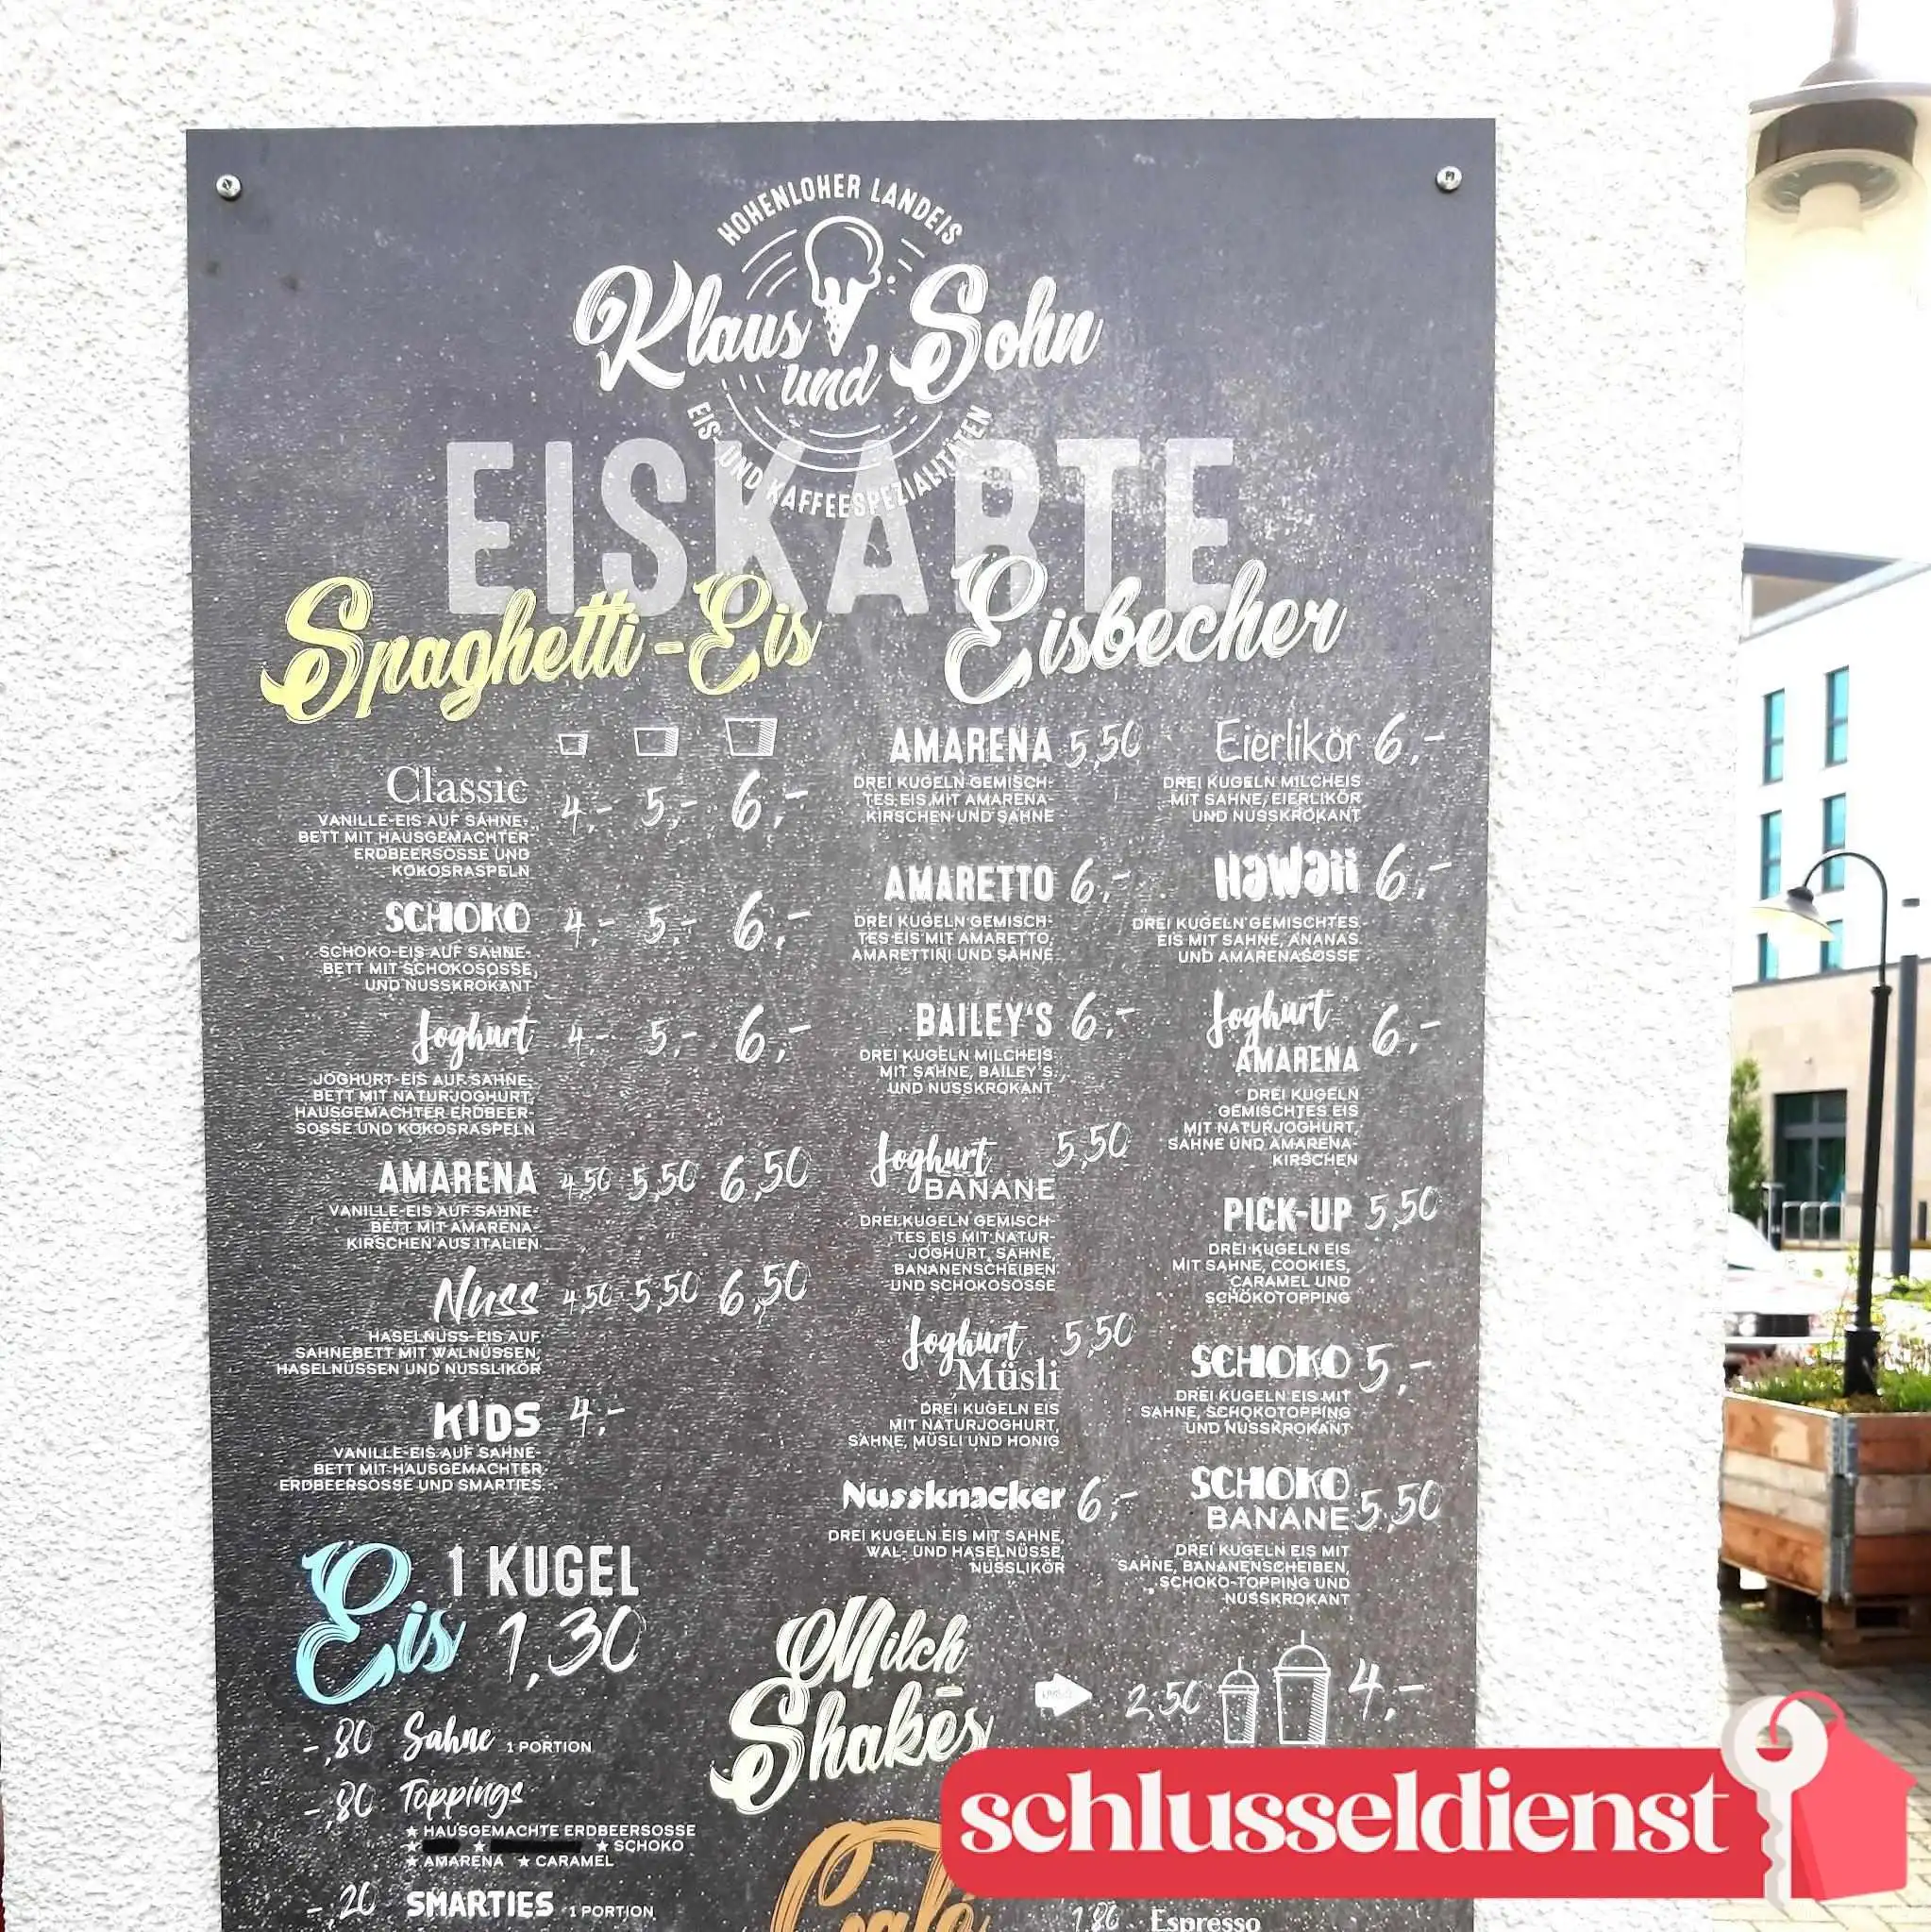 HOHENLOHER LANDEIS
Klaus und Sohn
EIS- UND KAFFEESPEZIALITÄTEN
EISKARTE
Spaghetti-Eis
Classic 4,- 5,- 6,-
VANILLE-EIS AUF SAHNE-
BETT MIT HAUSGEMACHTER
ERDBEERSOSSE UND
KOKOSRASPELN
SCHOKO 4,- 5,- 6,-
SCHOKO-EIS AUF SAHNE-
BETT MIT SCHOKOSOSSE,
UND NUSSKROKANT
Joghurt 4,- 5,- 6,-
JOGHURT-EIS AUF SAHNE-
BETT MIT NATURJOGHURT,
HAUSGEMACHTER ERDBEER-
SOSSE UND KOKOSRASPELN
AMARENA 4,50 5,50 6,50
VANILLE-EIS AUF SAHNE-
BETT MIT AMARENA-
KIRSCHEN AUS ITALIEN
Nuss 4,50 5,50 6,50
HASELNUSS-EIS AUF
SAHNEBETT MIT WALNÜSSEN,
HASELNÜSSEN UND NUSSLIKÖR
KIDS 4,-
VANILLE-EIS AUF SAHNE-
BETT MIT HAUSGEMACHTER
ERDBEERSOSSE UND SMARTIES
Eisbecher
AMARENA 5,50
DREI KUGELN GEMISCH-
TES EIS MIT AMARENA-
KIRSCHEN UND SAHNE
AMARETTO 6,-
DREI KUGELN GEMISCH-
TES EIS MIT AMARETTO,
AMARETTINI UND SAHNE
BAILEY'S 6,-
DREI KUGELN MILCHEIS
MIT SAHNE, BAILEY'S
UND NUSSKROKANT
Joghurt 5,50
BANANE
DREI KUGELN GEMISCH-
TES EIS MIT NATUR-
JOGHURT, SAHNE,
BANANENSCHEIBEN
UND SCHOKOSOSSE
Joghurt 5,50
Müsli
DREI KUGELN EIS
MIT NATURJOGHURT,
SAHNE, MÜSLI UND HONIG
Nussknacker 6,-
DREI KUGELN EIS MIT SAHNE,
WAL- UND HASELNÜSSE,
NUSSLIKÖR
Eierlikör 6,-
DREI KUGELN MILCHEIS
MIT SAHNE, EIERLIKÖR
UND NUSSKROKANT
Hawaii 6,-
DREI KUGELN GEMISCHTES
EIS MIT SAHNE, ANANAS
UND AMARENASOSSE
Joghurt 6,-
AMARENA
DREI KUGELN
GEMISCHTES EIS
MIT NATURJOGHURT,
SAHNE UND AMARENA-
KIRSCHEN
PICK-UP 5,50
DREI KUGELN EIS
MIT SAHNE, COOKIES,
CARAMEL UND
SCHOKOTOPPING
SCHOKO 5,-
DREI KUGELN EIS MIT
SAHNE, SCHOKOTOPPING
UND NUSSKROKANT
SCHOKO
BANANE 5,50
DREI KUGELN EIS MIT
SAHNE, BANANENSCHEIBEN,
SCHOKO-TOPPING UND
NUSSKROKANT
Eis 1 KUGEL
1,30
-,80 Sahne 1 PORTION
-,80 Toppings
★ HAUSGEMACHTE ERDBEERSOSSE
★ ★ ★ SCHOKO
★ AMARENA ★ CARAMEL
-,20 SMARTIES 1 PORTION
Milch-
Shakes
2,50 4,-
Café
1,80 Espresso
schlusseldienst